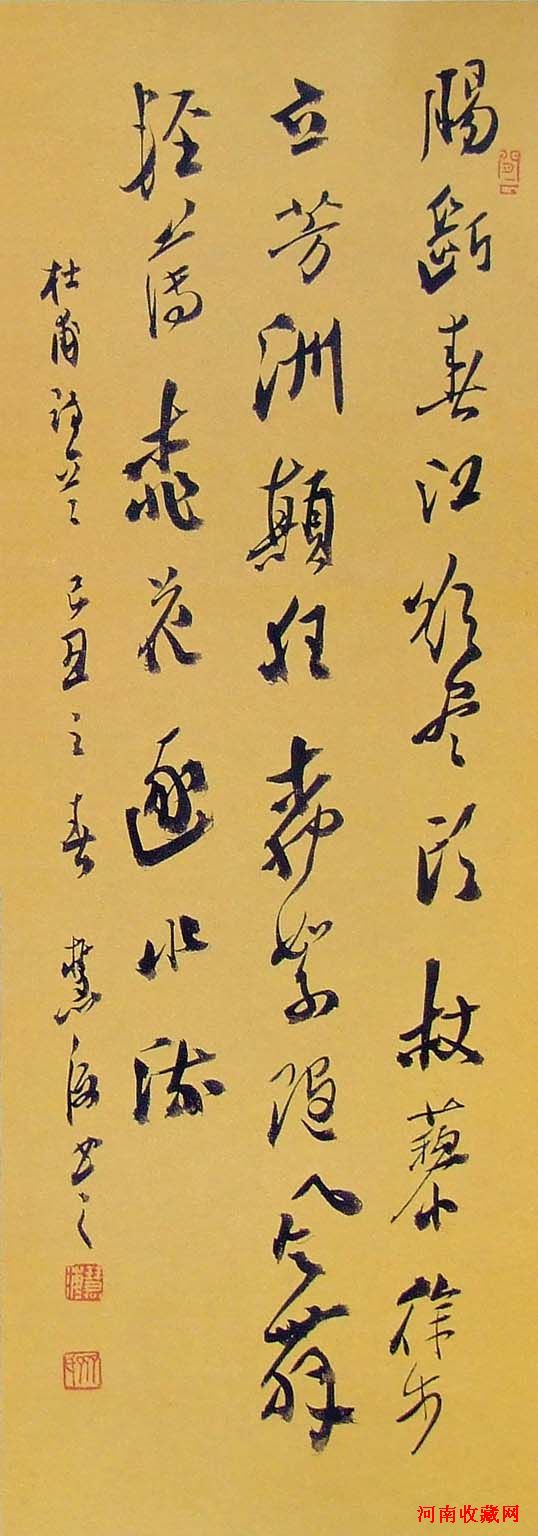 腸斷春江欲尽頭杖藜徐步
立芳洲顛狂柳絮隨風舞
輕薄桃花逐水流
杜甫詩 己丑之春 慧海书
河南收藏网